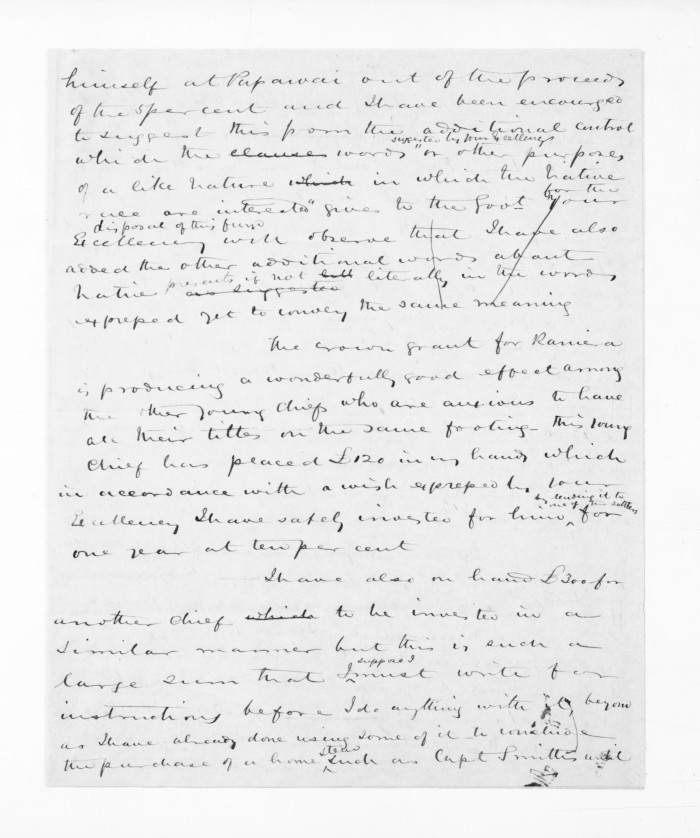 himself at Papawai out of the proceeds
of the 5 per cent and I have been encouraged
to suggest this from the additional control
suggested by your Excellency
which the clause words "or other purposes
of a like nature which in which the Native
for the
race are interested" gives to the Govt Your
disposal of this fund
Excellency will observe that I have also
added the other additional words about
Native presents if not literally in the words
as suggested
expressed yet to convey the same meaning
The crown grant for Raniera
is producing a wonderfully good effect among
the other young chiefs who are anxious to have
all their titles on the same footing - this young
chief has placed £120 in my hands which
in accordance with a wish expressed by your
by lending it to
one of our settlers
Excellency I have safely invested for him, for
one year at ten per cent
I have also on hand £300 for
another chief which to be invested in a
similar manner but this is such a
suppose I
large sum that I must write for
instructions before I do anything with it, beyond
as I have already done using some of it to conclude
stead
the purchase of a home such as Capt Smith's